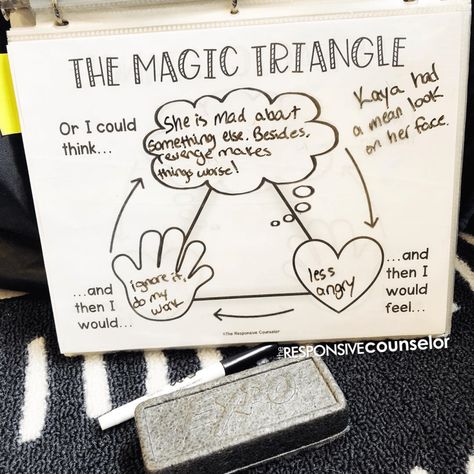 THE MAGIC TRIANGLE
Or I could
think...
She is mad about
something else. Besides,
revenge makes
things worse!
Kaya had
a mean look
on her face.
...and
then I
would
feel...
less
angry
...and
then I
would...
ignore it,
do my
work
©The Responsive Counselor
the RESPONSIVE counselor
EXPO